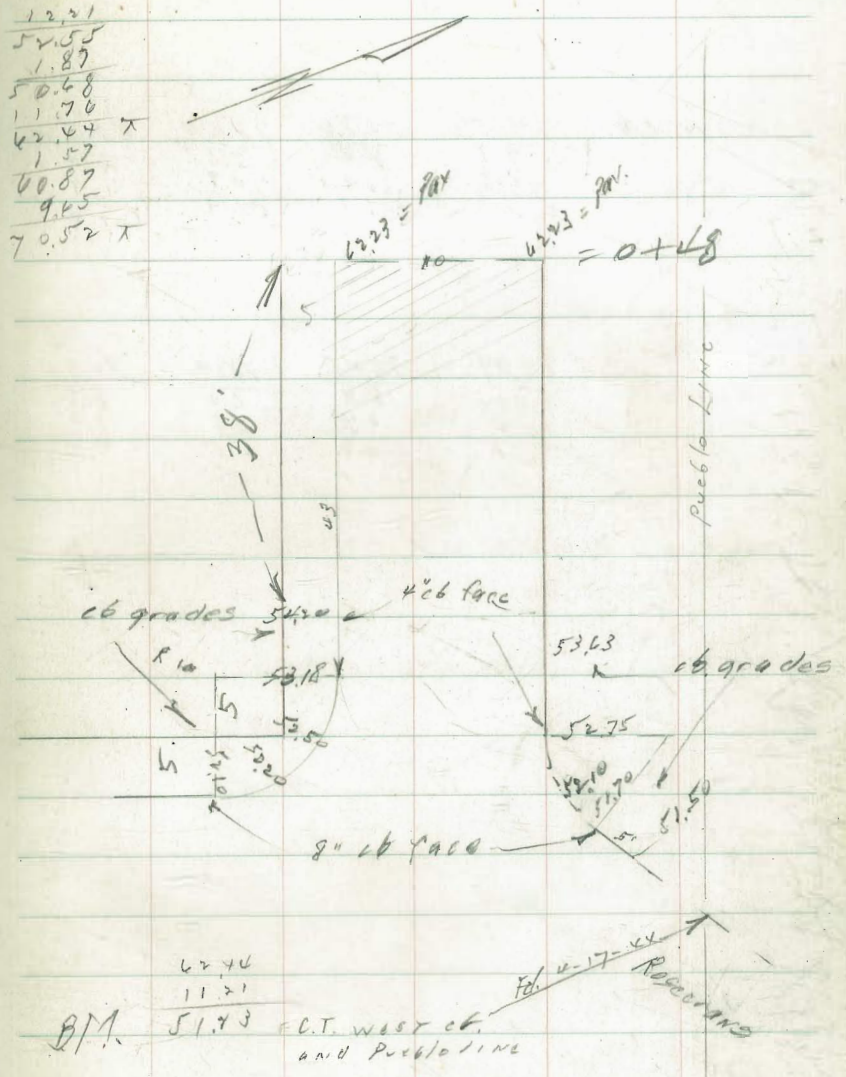 12.21
52.55
1.87
50.68
11.76
62.44 ⊼
1.57
60.87
9.65
70.52 ⊼
62.23 = Pav
62.23 = Pav.
= 0+48
40
5
38'
43
Pueblo Line
cb grades
54.20
4" cb face
53.63
cb. grades
R 10
53.18
5
52.75
5
52.50
52.20
52.10
51.70
51.50
5'
8" cb face
Fd. 4-17-44
Rosecrans
62.44
11.21
51.23
BM.
C.T. West cb.
and Pueblo line